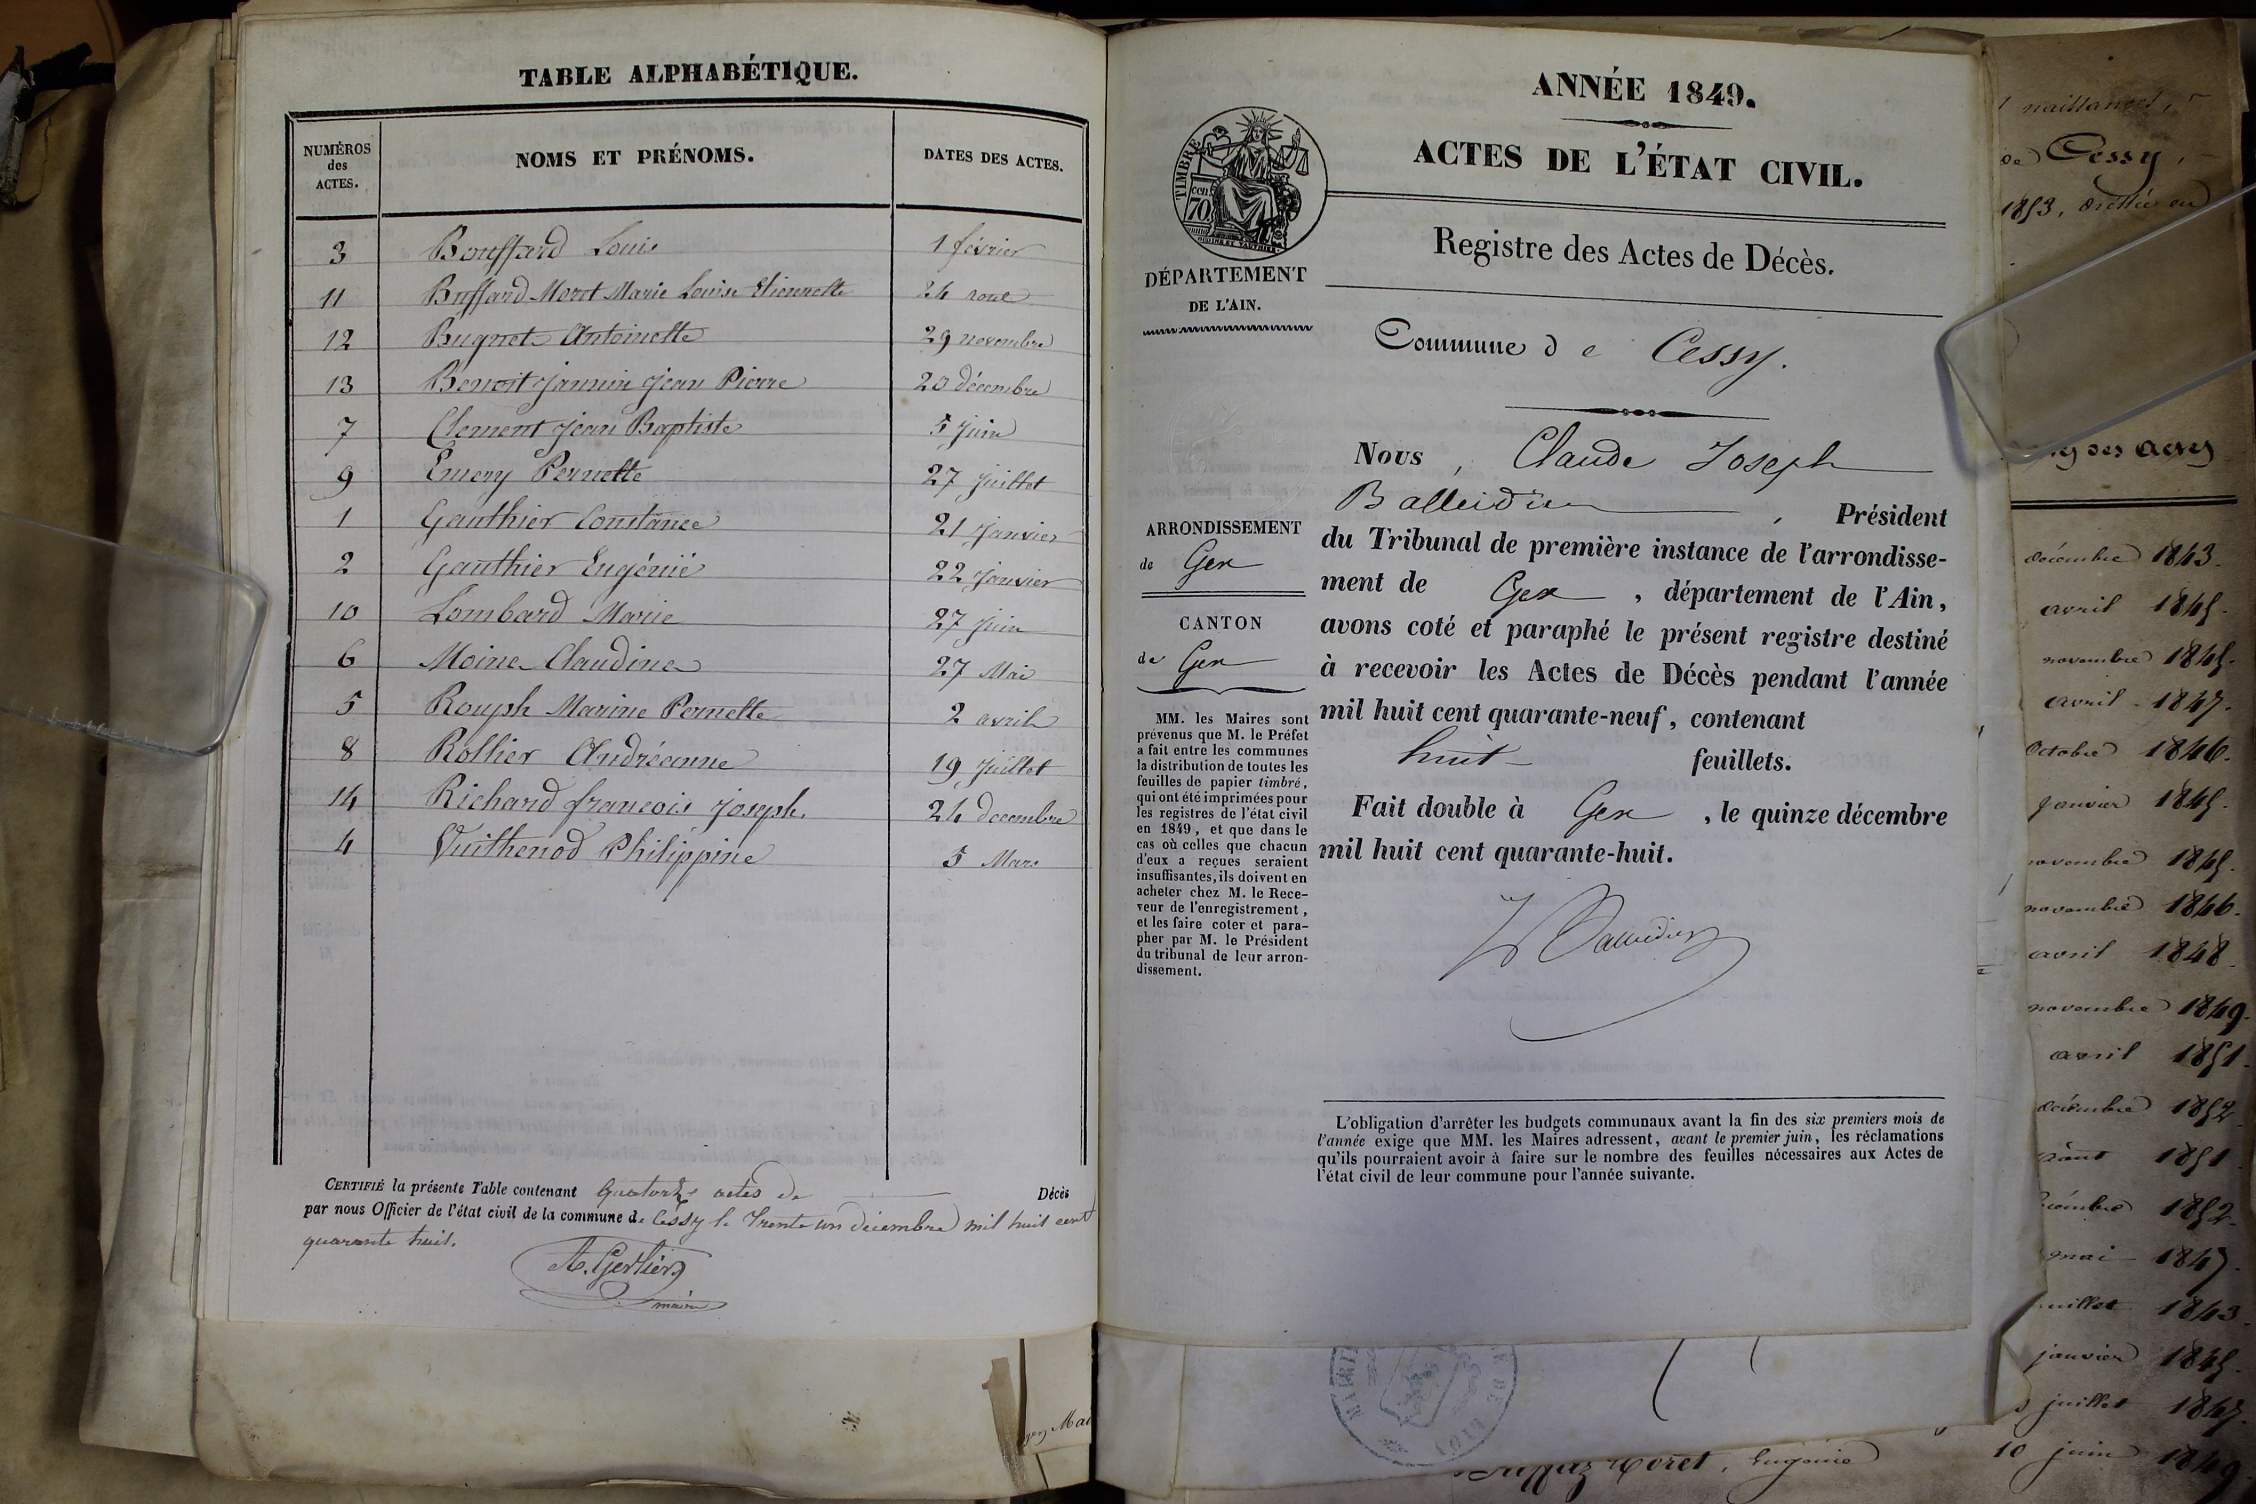 TABLE ALPHABÉTIQUE.
NUMÉROS des ACTES. NOMS ET PRÉNOMS. DATES DES ACTES.
3 Bouffard Louis 1 février
11 Buffard Moret Marie Louise Etiennette 24 aout
12 Bugnet Antoinette 29 novembre
13 Benoit jannin jean Pierre 20 décembre
7 Clement jean Baptiste 5 juin
9 Emery Pernette 27 juillet
1 Gauthier Constance 21 janvier
2 Gauthier Eugénie 22 janvier
10 Lombard Marie 27 juin
6 Moine Claudine 27 Mai
5 Rouph Marine Pernette 2 avril
8 Rollier Andréanne 19 juillet
14 Richard francois joseph. 24 decembre
4 Vuithenod Philippine 5 Mars
CERTIFIÉ la présente Table contenant Quatorze actes de Décès
par nous Officier de l'état civil de la commune de Cessy le trente un décembre mil huit cent
quarante huit.
A. Gerlier
maire
ANNÉE 1849.
ACTES DE L'ÉTAT CIVIL.
TIMBRE
70 cen
DÉPARTEMENT
DE L'AIN.
Registre des Actes de Décès.
Commune d e Cessy.
ARRONDISSEMENT
de Gex
CANTON
de Gex
MM. les Maires sont
prévenus que M. le Préfet
a fait entre les communes
la distribution de toutes les
feuilles de papier timbré,
qui ont été imprimées pour
les registres de l'état civil
en 1849, et que dans le
cas où celles que chacun
d'eux a reçues seraient
insuffisantes, ils doivent en
acheter chez M. le Rece-
veur de l'enregistrement,
et les faire coter et para-
pher par M. le Président
du tribunal de leur arron-
dissement.
Nous, Claude Joseph
Balleidier, Président
du Tribunal de première instance de l'arrondisse-
ment de Gex, département de l'Ain,
avons coté et paraphé le présent registre destiné
à recevoir les Actes de Décès pendant l'année
mil huit cent quarante-neuf, contenant
huit feuillets.
Fait double à Gex, le quinze décembre
mil huit cent quarante-huit.
L'obligation d'arrêter les budgets communaux avant la fin des six premiers mois de
l'année exige que MM. les Maires adressent, avant le premier juin, les réclamations
qu'ils pourraient avoir à faire sur le nombre des feuilles nécessaires aux Actes de
l'état civil de leur commune pour l'année suivante.
de Cessy
1853,
des actes
décembre 1843.
avril 1845.
novembre 1845.
avril 1847.
octobre 1846.
janvier 1845.
novembre 1845.
novembre 1846.
avril 1848.
novembre 1849.
avril 1851.
décembre 1852.
août 1851.
décembre 1852.
mai 1847.
juillet 1843.
janvier 1845.
juillet 1847.
10 juin 1849.
Moret, Eugénie